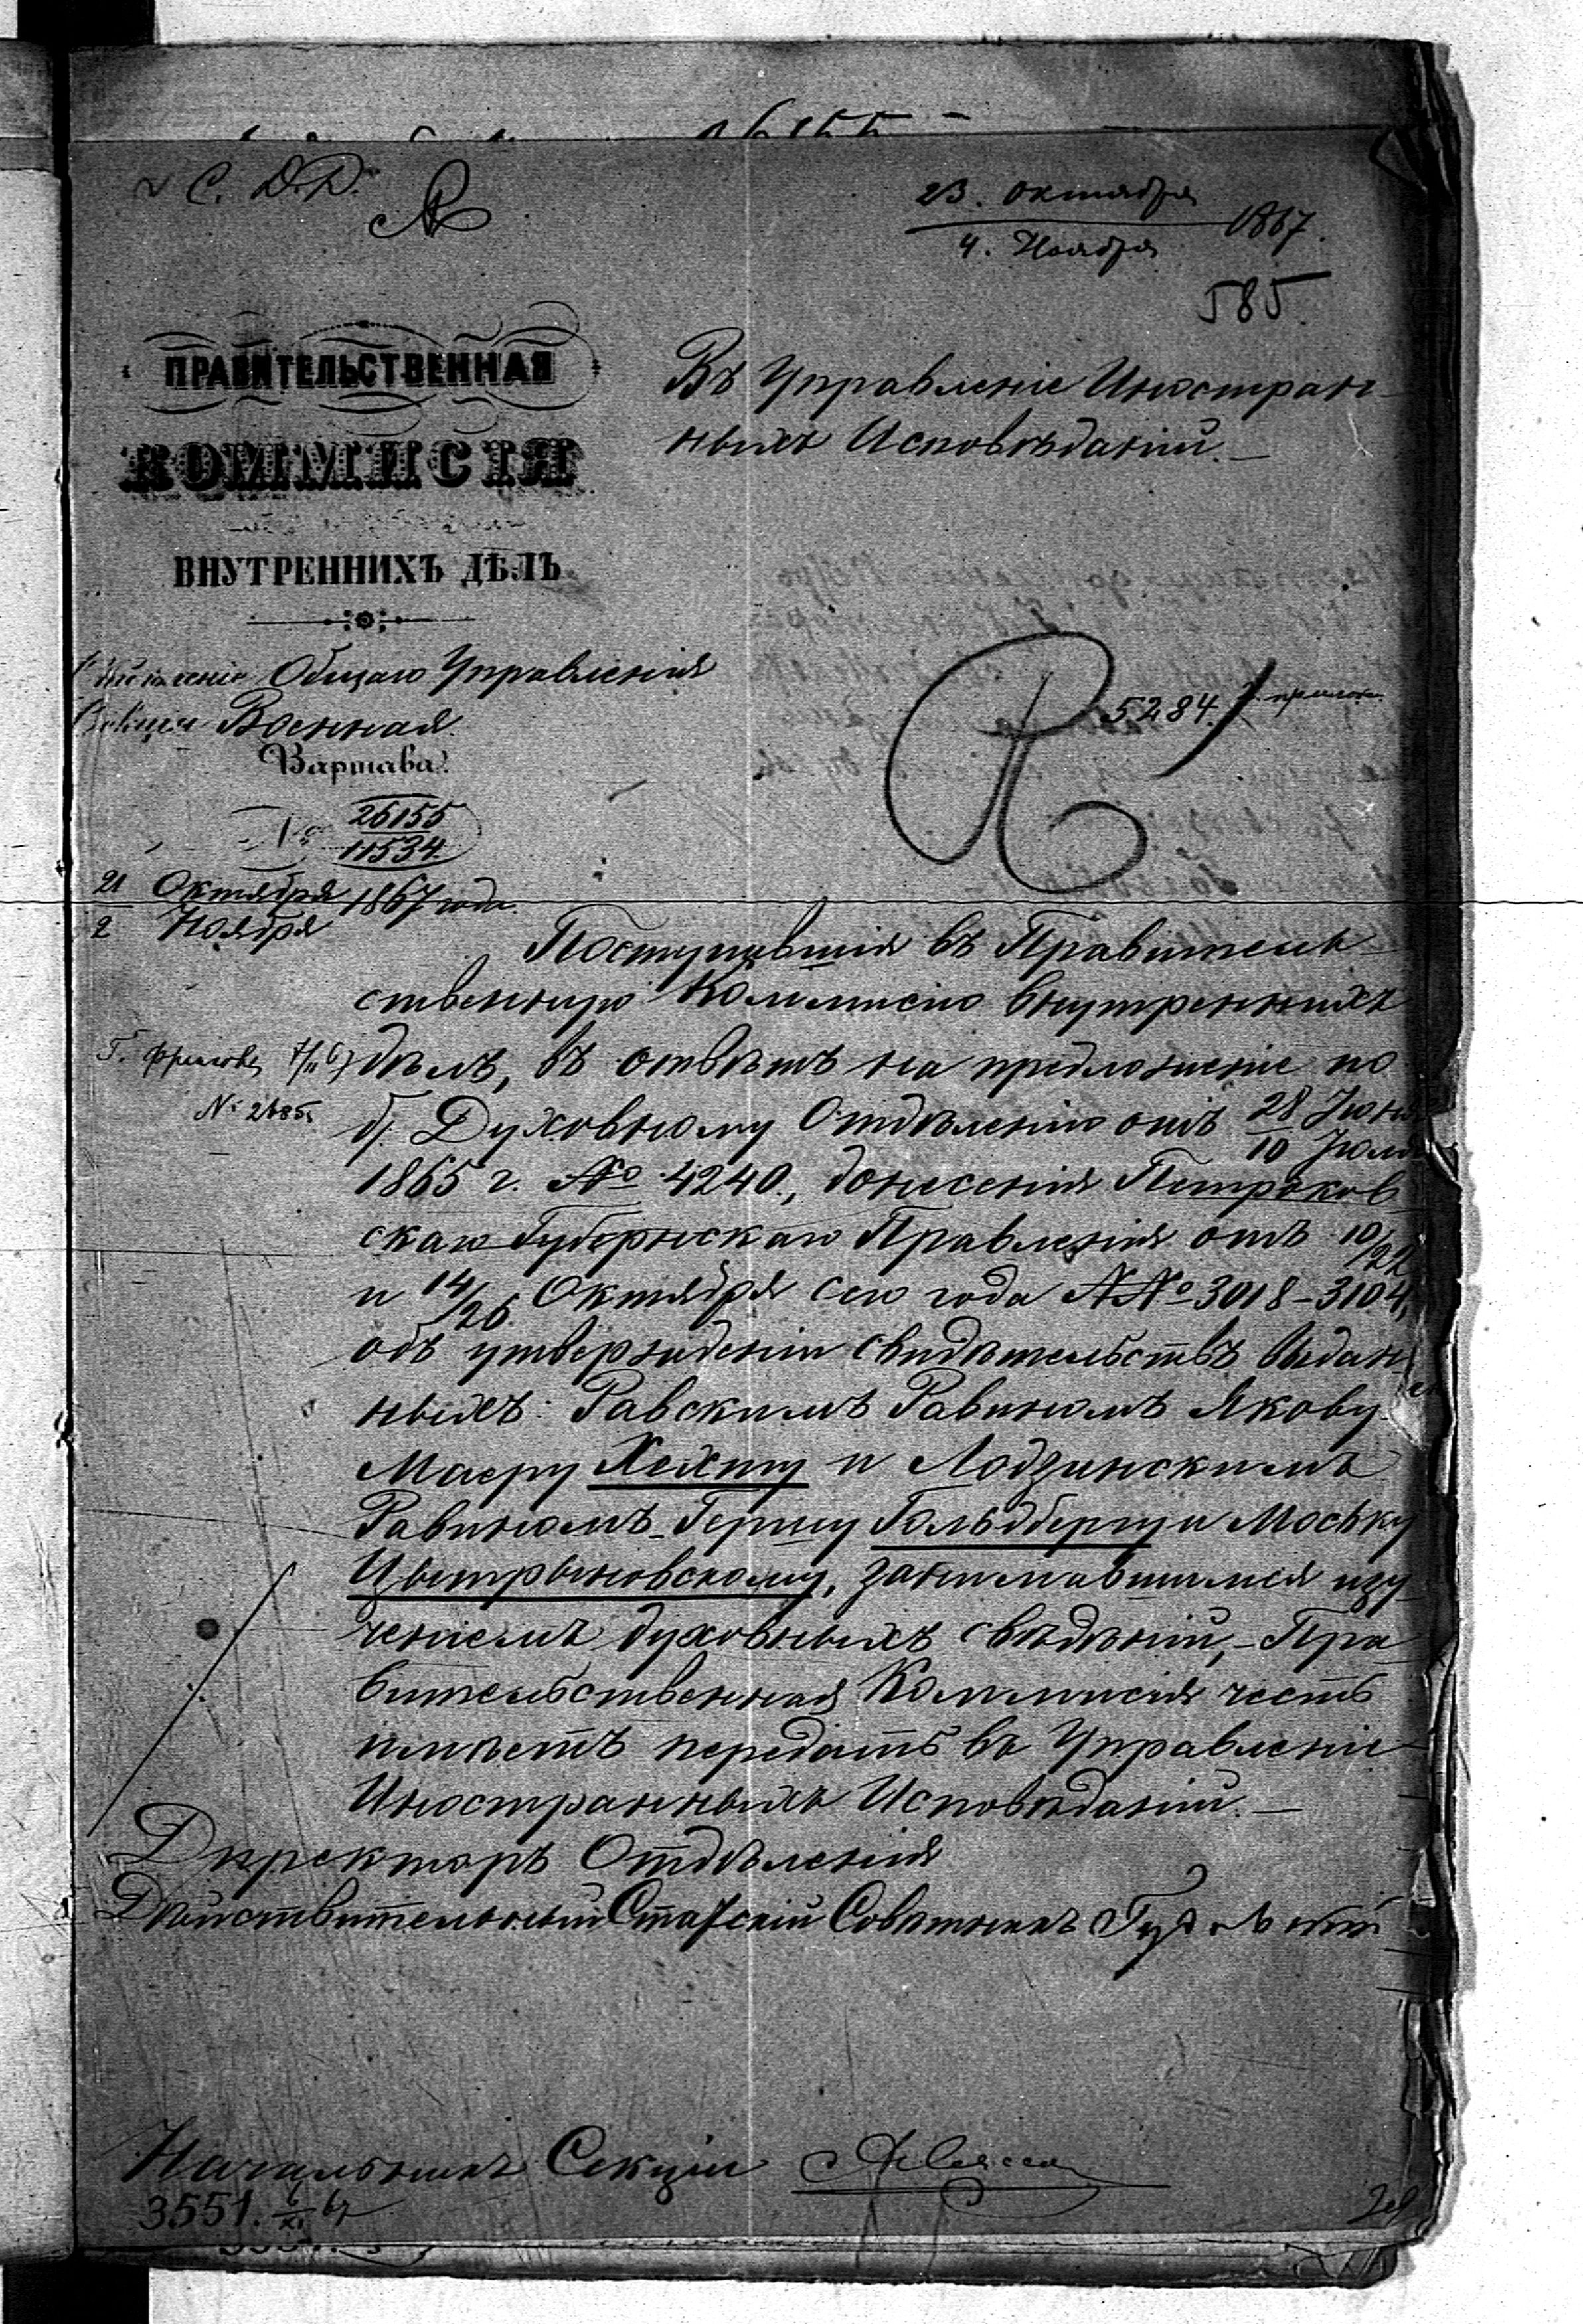 С. Д. Д.
23. Октября
4. Ноября 1867.
585.
ПРАВИТЕЛЬСТВЕННАЯ
КОММИСІЯ
ВНУТРЕННИХЪ ДѢЛЪ
Въ Управленіе Иностран-
ныхъ Исповѣданій.—
Отдѣленіе Общаго Управленія
Секція Военная.
Варшава.
5284.
№ 26155
11534.
21 Октября
2 Ноября 1867 года.
Поступившія въ Правитель-
ственную Коммисію Внутреннихъ
дѣлъ, въ отвѣтъ на предложеніе по
№ 2685
б. Духовному Отдѣленію отъ 28 Іюня
10 Іюля
1865 г. № 4240., донесенія Петроков-
скаго Губернскаго Правленія отъ 10/22
и 14/26 Октября сего года №№ 3018–3104,
объ утвержденіи свидѣтельствъ выдан-
ныхъ: Равскимъ Равиномъ Якову
Маеру Хехту и Лодзинскимъ
Равиномъ Гершу Гольдбергу и Моську
Цытрыновскому, занимавшимся изу-
ченіемъ духовныхъ свѣдѣній,– Пра-
вительственная Коммисія честь
имѣетъ передать въ Управленіе
Иностранныхъ Исповѣданій.—
Директоръ Отдѣленія
Дѣйствительный Статскій Совѣтникъ
Начальникъ Секціи
3551. 6/XI 67